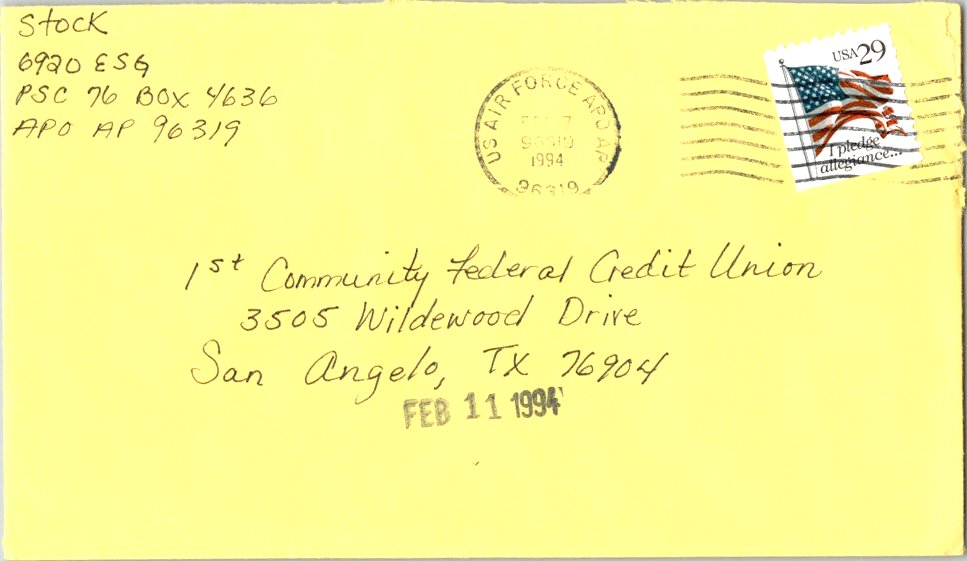 Stock
6920 ESG
PSC 76 BOX 4636
APO AP 96319
US AIR FORCE APO AP
1994
96319
USA 29
I pledge
allegiance...
1st Community Federal Credit Union
3505 Wildewood Drive
San Angelo, TX 76904
FEB 11 1994